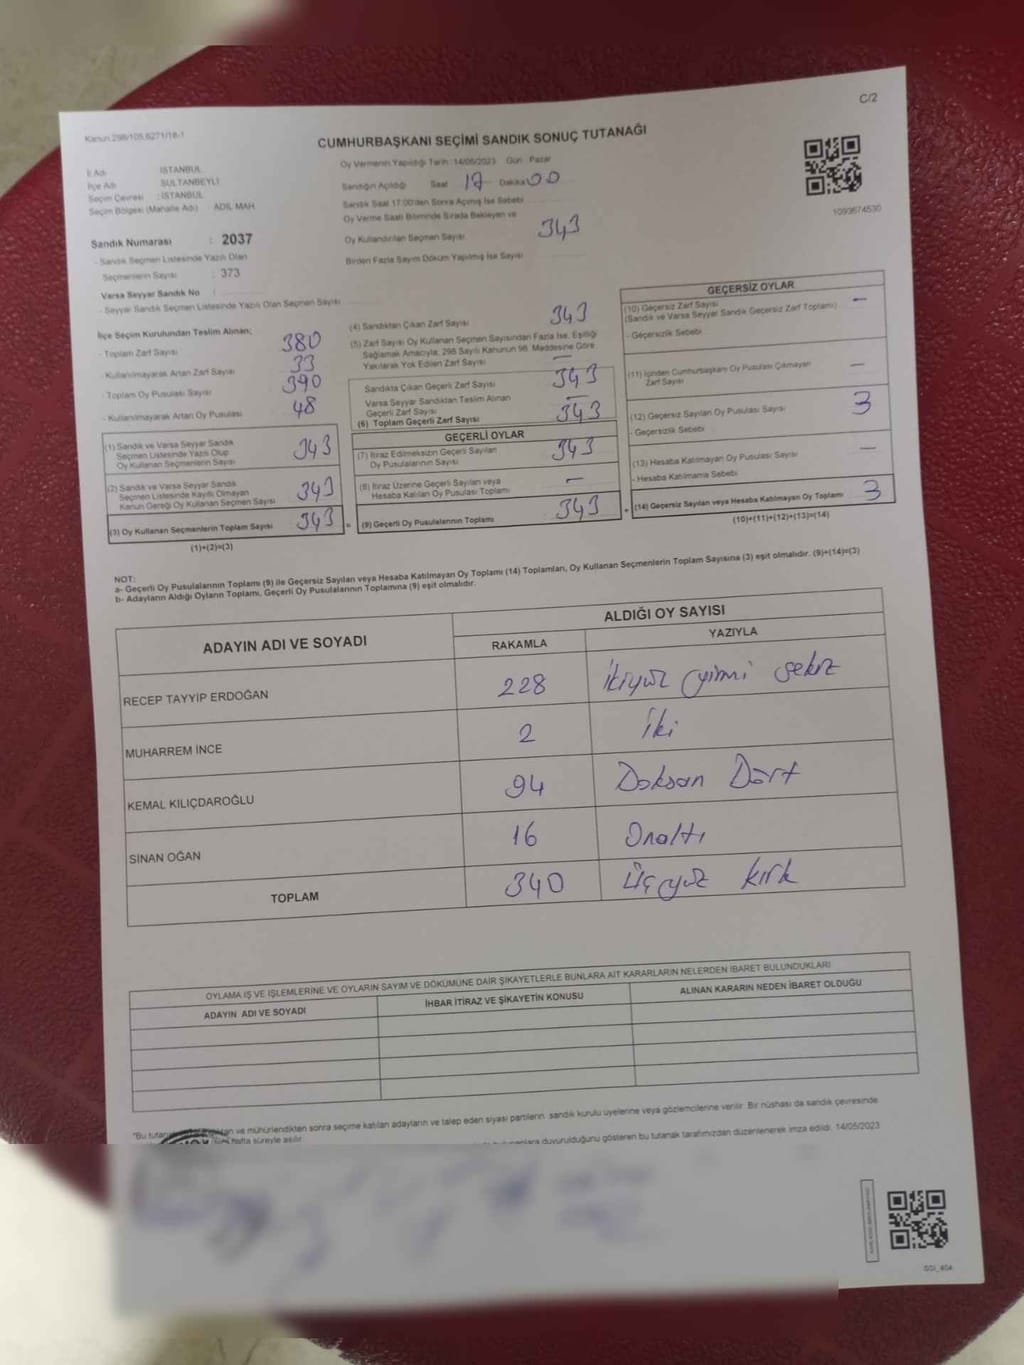 C/2
Kanun 298/105,6271/18-1
CUMHURBAŞKANI SEÇİMİ SANDIK SONUÇ TUTANAĞI
İl Adı : İSTANBUL
İlçe Adı : SULTANBEYLİ
Seçim Çevresi : İSTANBUL
Seçim Bölgesi (Mahalle Adı) : ADİL MAH
Oy Vermenin Yapıldığı Tarih :14/05/2023 Gün Pazar
Sandığın Açıldığı Saat 17 Dakika 00
Sandık Saat 17:00'den Sonra Açılmış İse Sebebi
Oy Verme Saati Bitiminde Sırada Bekleyen ve
Oy Kullandırılan Seçmen Sayısı 343
Birden Fazla Sayım Döküm Yapılmış İse Sayısı
1093674530
Sandık Numarası : 2037
- Sandık Seçmen Listesinde Yazılı Olan
Seçmenlerin Sayısı : 373
Varsa Seyyar Sandık No :
- Seyyar Sandık Seçmen Listesinde Yazılı Olan Seçmen Sayısı
İlçe Seçim Kurulundan Teslim Alınan;
- Toplam Zarf Sayısı 380
- Kullanılmayarak Artan Zarf Sayısı 33
- Toplam Oy Pusulası Sayısı 390
- Kullanılmayarak Artan Oy Pusulası 48
(1) Sandık ve Varsa Seyyar Sandık
Seçmen Listesinde Yazılı Olup
Oy Kullanan Seçmenlerin Sayısı 343
(2) Sandık ve Varsa Seyyar Sandık
Seçmen Listesinde Kayıtlı Olmayan
Kanun Gereği Oy Kullanan Seçmen Sayısı 343
(3) Oy Kullanan Seçmenlerin Toplam Sayısı 343 =
(1)+(2)=(3)
(4) Sandıktan Çıkan Zarf Sayısı 343
(5) Zarf Sayısı Oy Kullanan Seçmen Sayısından Fazla İse, Eşitliği
Sağlamak Amacıyla; 298 Sayılı Kanunun 98. Maddesine Göre
Yakılarak Yok Edilen Zarf Sayısı —
Sandıkta Çıkan Geçerli Zarf Sayısı 343
Varsa Seyyar Sandıktan Teslim Alınan
Geçerli Zarf Sayısı —
(6) Toplam Geçerli Zarf Sayısı 343
GEÇERLİ OYLAR
(7) İtiraz Edilmeksizin Geçerli Sayılan
Oy Pusulalarının Sayısı 343
(8) İtiraz Üzerine Geçerli Sayılan veya
Hesaba Katılan Oy Pusulası Toplamı —
(9) Geçerli Oy Pusulalarının Toplamı 343 +
GEÇERSİZ OYLAR
(10) Geçersiz Zarf Sayısı —
(Sandık ve Varsa Seyyar Sandık Geçersiz Zarf Toplamı)
- Geçersizlik Sebebi
(11) İçinden Cumhurbaşkanı Oy Pusulası Çıkmayan
Zarf Sayısı —
(12) Geçersiz Sayılan Oy Pusulası Sayısı 3
- Geçersizlik Sebebi
(13) Hesaba Katılmayan Oy Pusulası Sayısı —
- Hesaba Katılmama Sebebi
(14) Geçersiz Sayılan veya Hesaba Katılmayan Oy Toplamı 3
(10)+(11)+(12)+(13)=(14)
NOT:
a- Geçerli Oy Pusulalarının Toplamı (9) ile Geçersiz Sayılan veya Hesaba Katılmayan Oy Toplamı (14) Toplamları, Oy Kullanan Seçmenlerin Toplam Sayısına (3) eşit olmalıdır. (9)+(14)=(3)
b- Adayların Aldığı Oyların Toplamı, Geçerli Oy Pusulalarının Toplamına (9) eşit olmalıdır.
ADAYIN ADI VE SOYADI
ALDIĞI OY SAYISI
RAKAMLA YAZIYLA
RECEP TAYYİP ERDOĞAN 228 İkiyüz yirmi sekiz
MUHARREM İNCE 2 İki
KEMAL KILIÇDAROĞLU 94 Doksan Dört
SİNAN OĞAN 16 Onaltı
TOPLAM 340 Üçyüz kırk
OYLAMA İŞ VE İŞLEMLERİNE VE OYLARIN SAYIM VE DÖKÜMÜNE DAİR ŞİKAYETLERLE BUNLARA AİT KARARLARIN NELERDEN İBARET BULUNDUKLARI
ADAYIN ADI VE SOYADI İHBAR İTİRAZ VE ŞİKAYETİN KONUSU ALINAN KARARIN NEDEN İBARET OLDUĞU
"Bu ve mühürlendikten sonra seçime katılan adayların ve talep eden siyasi partilerin sandık kurulu üyelerine veya gözlemcilerine verilir. Bir nüshası da sandık çevresinde
hafta süreyle asılır. duyurulduğunu gösteren bu tutanak tarafımızdan düzenlenerek imza edildi. 14/05/2023